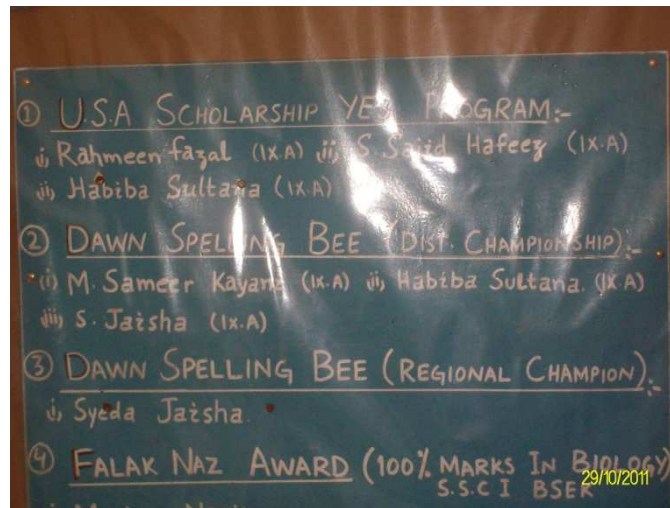 ① U.S.A SCHOLARSHIP YES PROGRAM:-
i, Rahmeen fazal (IX.A) ii, S. Sajid Hafeez (IX.A)
iii, Habiba Sultana (IX.A)
② DAWN SPELLING BEE (DIST. CHAMPIONSHIP):-
(i) M. Sameer Kayani (IX.A) ii, Habiba Sultana. (IX.A)
iii, S. Jaisha (IX.A)
③ DAWN SPELLING BEE (REGIONAL CHAMPION):-
i, Syeda Jaisha.
④ FALAK NAZ AWARD (100% MARKS IN BIOLOGY)
S.S.C I BSEK
29/10/2011